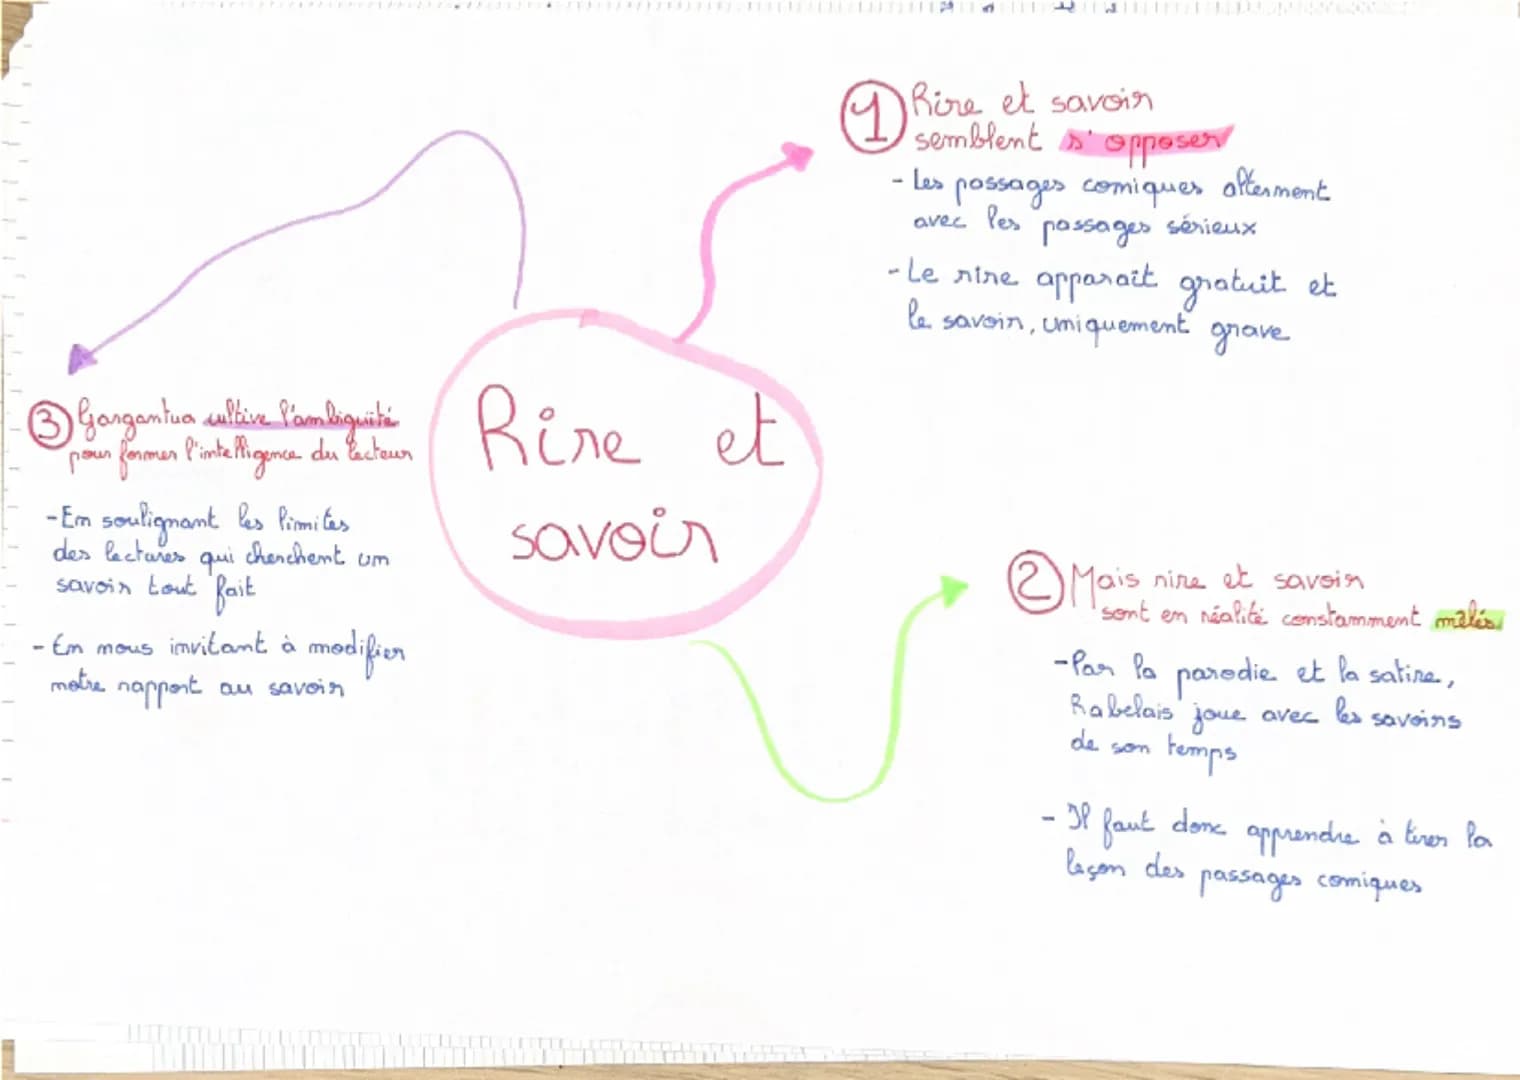 Rire et savoir
① Rire et savoir
semblent s'opposer
- Les passages comiques alternent
avec les passages sérieux
- Le rire apparaît gratuit et
le savoir, uniquement grave
② Mais rire et savoir
sont en réalité constamment mêlés
- Par la parodie et la satire,
Rabelais joue avec les savoirs
de son temps
- Il faut donc apprendre à tirer la
leçon des passages comiques
③ Gargantua cultive l'ambiguïté
pour former l'intelligence du lecteur
- En soulignant les limites
des lectures qui cherchent un
savoir tout fait
- En nous invitant à modifier
notre rapport au savoir